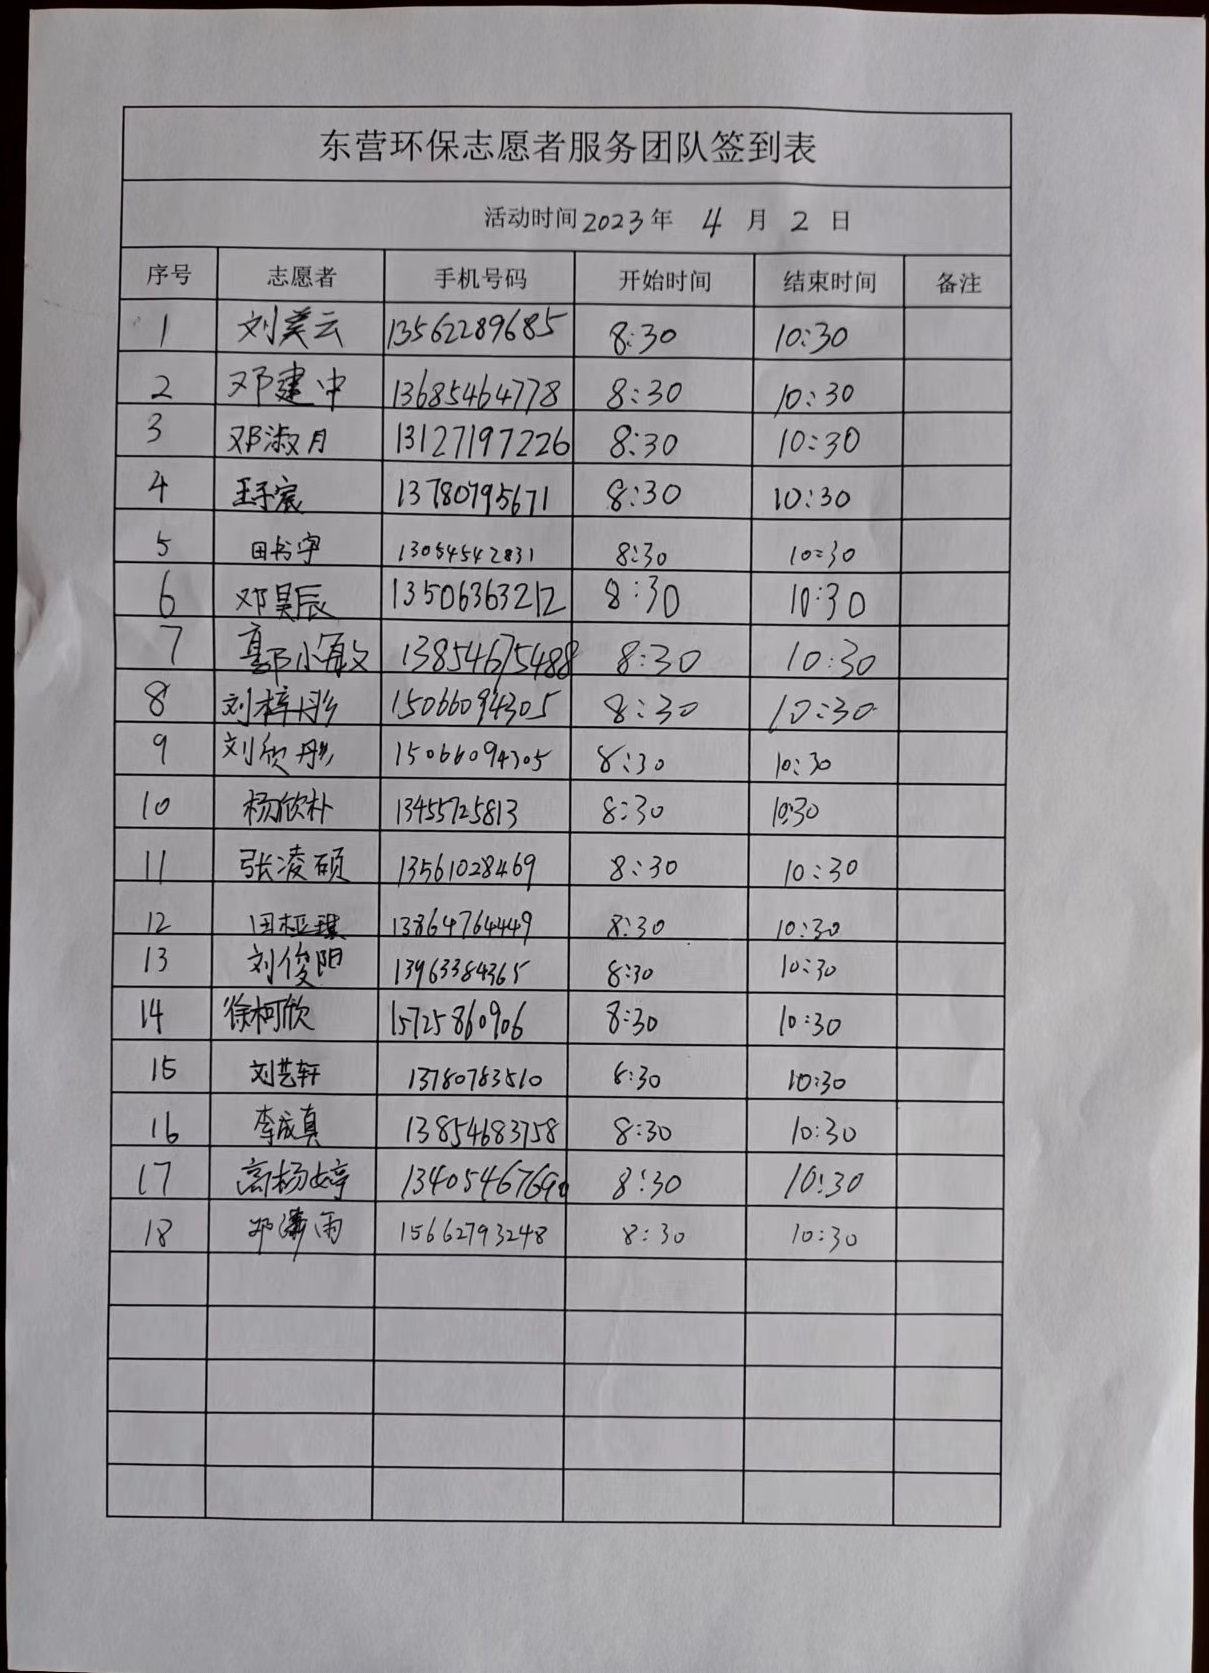 东营环保志愿者服务团队签到表
活动时间2023年 4 月 2 日
序号 志愿者 手机号码 开始时间 结束时间 备注
1 刘美云 13562289685 8:30 10:30
2 邓建中 13685464778 8:30 10:30
3 邓淑月 13127197226 8:30 10:30
4 王子宸 13780795671 8:30 10:30
5 田书宇 13054542831 8:30 10:30
6 邓昊辰 13506363212 8:30 10:30
7 郭小敏 13854675488 8:30 10:30
8 刘梓彤 15066094305 8:30 10:30
9 刘欣彤 15066094305 8:30 10:30
10 杨欣朴 13455725813 8:30 10:30
11 张凌硕 13561028469 8:30 10:30
12 田桠琪 13864764449 8:30 10:30
13 刘俊阳 13963384365 8:30 10:30
14 徐柯欣 15725860906 8:30 10:30
15 刘艺轩 13780783510 8:30 10:30
16 李成真 13854683758 8:30 10:30
17 高杨婷 8:30 10:30
18 15662793248 8:30 10:30